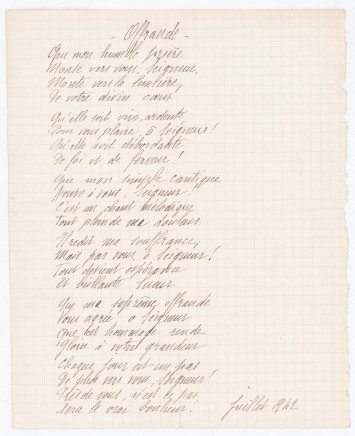 - Offrande -
Que mon humble prière
Monte vers vous, Seigneur,
Monte vers la lumière,
De votre divin cœur
Qu'elle soit vive, ardente
Pour vous plaire, ô Seigneur!
Qu'elle soit débordante
De foi et de ferveur!
Que mon simple cantique
à vous, Seigneur!
C'est un chant mélodique
Tout plein de ma douleur
Il redit ma souffrance,
Mais par vous, ô Seigneur!
Tout devient espérance
Et brillante lueur
Que ma suprême offrande
Vous agrée, ô Seigneur
Que cet hommage rende
Gloire à votre grandeur
Chaque jour est un pas
De plus vers vous, Seigneur!
Près de vous, n'est-ce pas,
Sera le vrai bonheur.
Juillet 1942